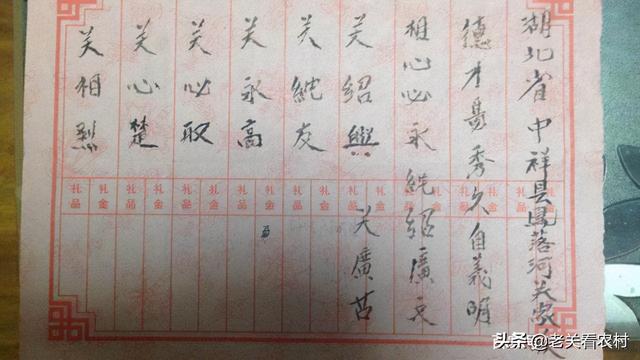 湖北省中祥县鳳落河关家
德才秀久自義明
相心必永純紹廣文
关紹興
关廣
关純友
关永高
关必取
关心楚
关相烈
礼品 礼金 礼品 礼金 礼品 礼金 礼品 礼金 礼品 礼金 礼品 礼金 礼品 礼金 礼品 礼金
头条 @老关看农村